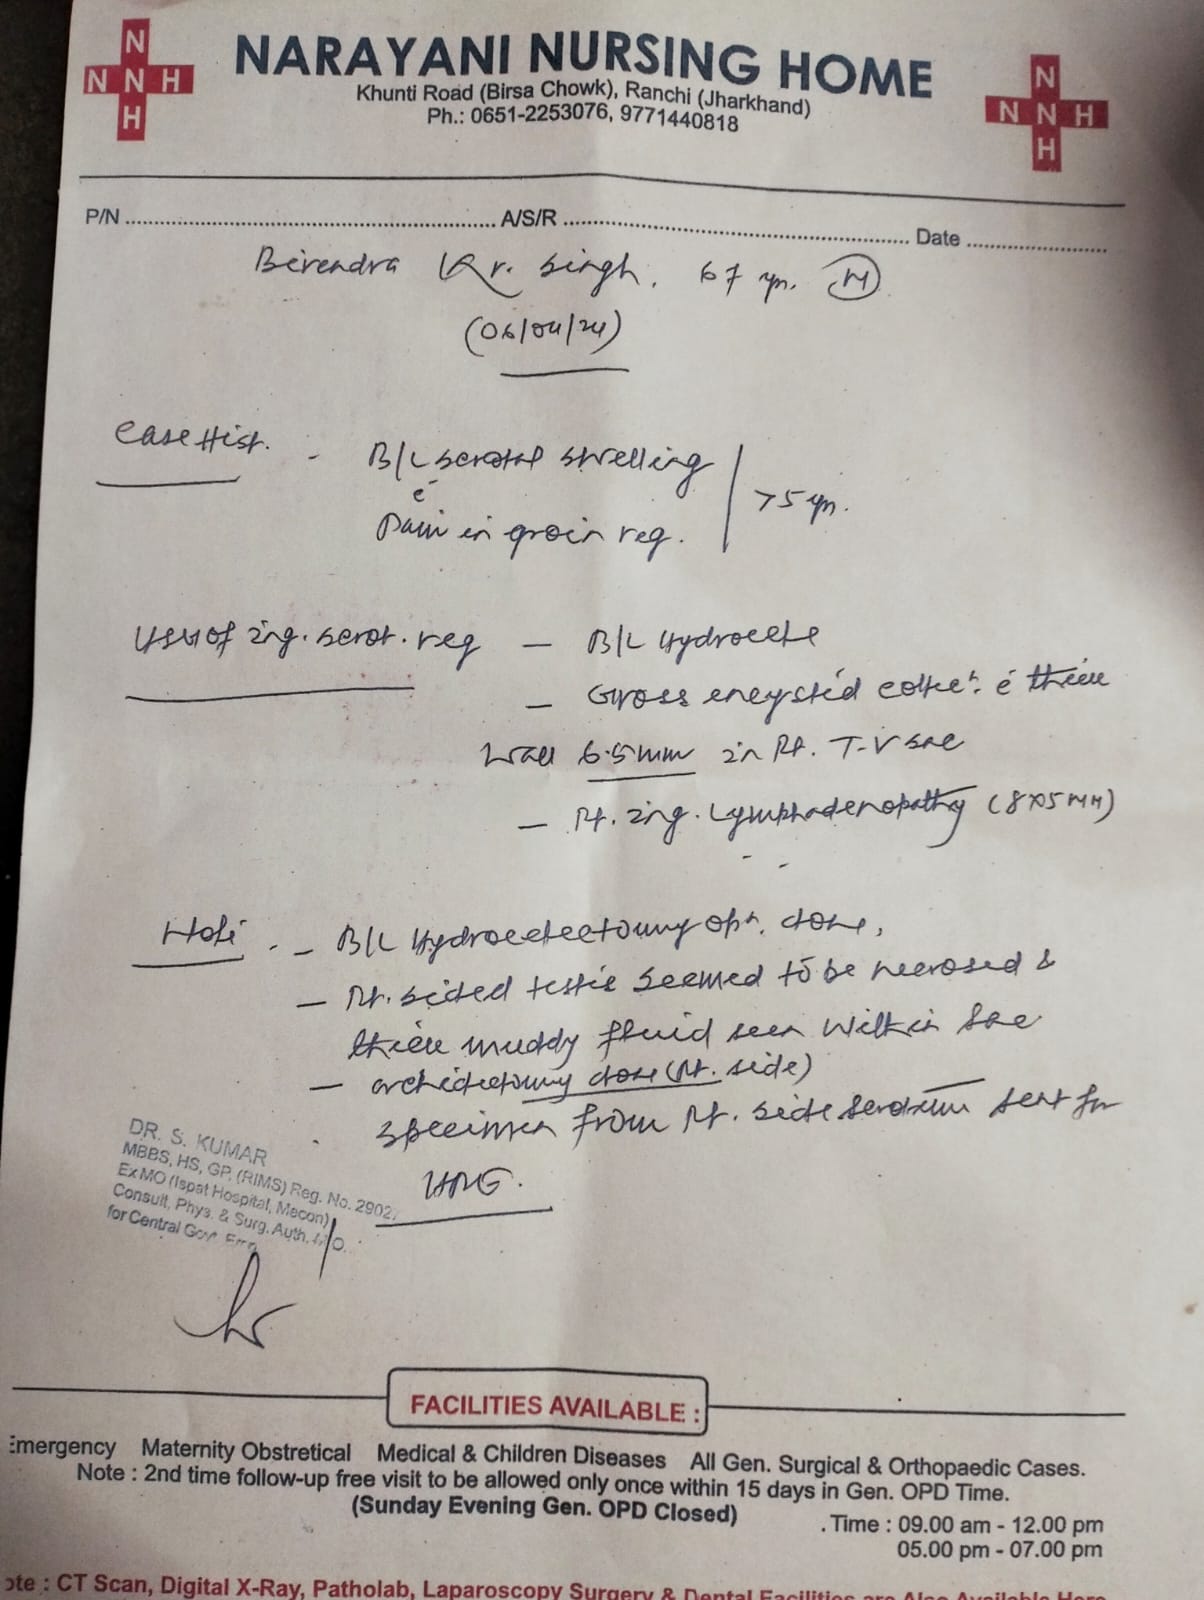 N
N N H
H
NARAYANI NURSING HOME
Khunti Road (Birsa Chowk), Ranchi (Jharkhand)
Ph.: 0651-2253076, 9771440818
N
N N H
H
P/N ........................ A/S/R ........................ Date ........................
Birendra Kr. Singh. 67 yr. (M)
(06/04/24)
Case Hist. - B/L scrotal swelling
c̄
Pain in groin reg. >5 yr.
USG of ing. scrot. reg - B/L Hydrocele
- Gross encysted collec. c̄ thick
wall 6.5mm in Rt. T.V sac
- Rt. ing. Lymphadenopathy (8x5MM)
- B/L Hydrocelectomy opn. done,
- Rt. sided testis seemed to be necrosed &
thick muddy fluid seen within sac
- orchidectomy done (Rt. side)
specimen from Rt. side scrotum sent for
DR. S. KUMAR
MBBS, HS, GP. (RIMS) Reg. No. 2902
Ex MO (Ispat Hospital, Mecon)
Consult, Phys. & Surg. Auth.
for Central Gov
FACILITIES AVAILABLE :
Emergency Maternity Obstretical Medical & Children Diseases All Gen. Surgical & Orthopaedic Cases.
Note : 2nd time follow-up free visit to be allowed only once within 15 days in Gen. OPD Time.
(Sunday Evening Gen. OPD Closed)
. Time : 09.00 am - 12.00 pm
05.00 pm - 07.00 pm
ote : CT Scan, Digital X-Ray, Patholab, Laparoscopy Surgery & Dental Facilities are Also Available Here